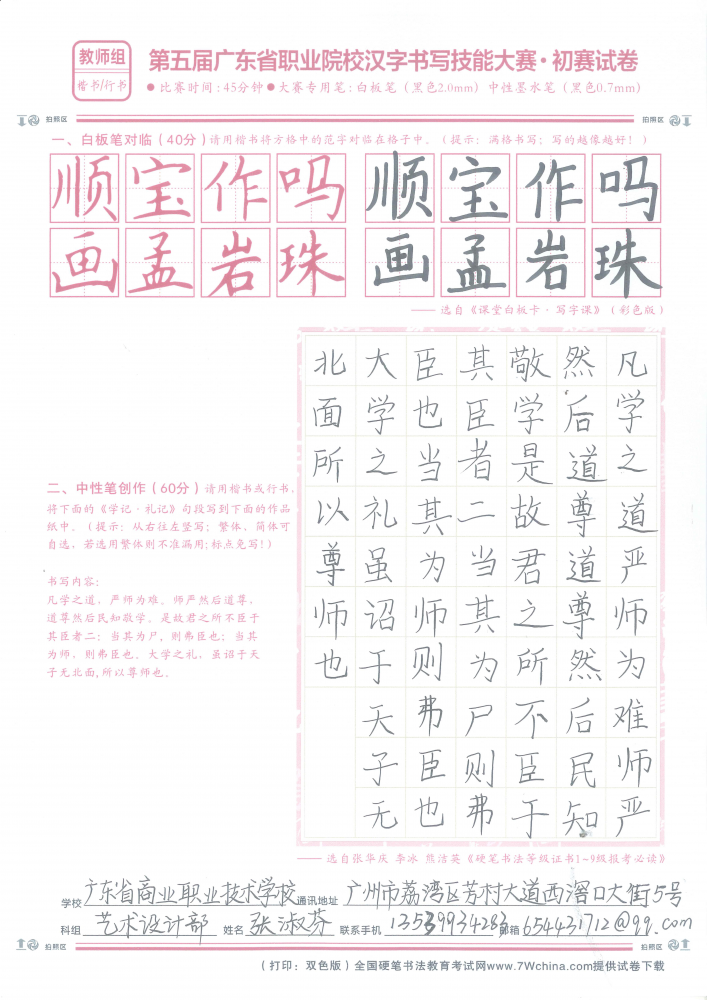 教师组
楷书/行书
第五届广东省职业院校汉字书写技能大赛·初赛试卷
●比赛时间:45分钟●大赛专用笔:白板笔(黑色2.0mm)中性墨水笔(黑色0.7mm)
拍照区 拍照区
一、白板笔对临(40分)请用楷书将方格中的范字对临在格子中。(提示:满格书写;写的越像越好!)
顺宝作吗 顺宝作吗
画孟岩珠 画孟岩珠
——选自《课堂白板卡·写字课》(彩色版)
二、中性笔创作(60分)请用楷书或行书,
将下面的《学记·礼记》句段写到下面的作品
纸中。(提示:从右往左竖写;繁体、简体可
自选,若选用繁体则不准漏用;标点免写!)
书写内容:
凡学之道,严师为难。师严然后道尊,
道尊然后民知敬学。是故君之所不臣于
其臣者二:当其为尸,则弗臣也;当其
为师,则弗臣也。大学之礼,虽诏于天
子无北面,所以尊师也。
凡学之道严师为难师严
然后道尊道尊然后民知
敬学是故君之所不臣于
其臣者二当其为尸则弗
臣也当其为师则弗臣也
大学之礼虽诏于天子无
北面所以尊师也
——选自张华庆 李冰 熊洁英《硬笔书法等级证书1~9级报考必读》
学校 广东省商业职业技术学校 通讯地址 广州市荔湾区芳村大道西滘口大街5号
科组 艺术设计部 姓名 张淑芬 联系手机 13539934283 邮箱 654431712@qq.com
拍照区 拍照区
(打印:双色版)全国硬笔书法教育考试网www.7Wchina.com提供试卷下载